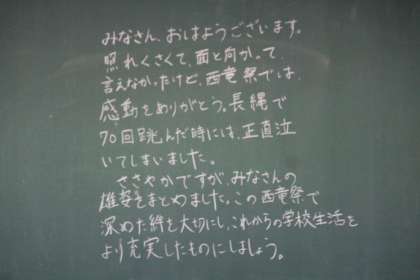 みなさん、おはようございます。
照れくさくて、面と向かって、
言えなかったけど、西竜祭では、
感動をありがとう。長縄で
70回跳んだ時には、正直泣
いてしまいました。
ささやかですが、みなさんの
雄姿をまとめました。この西竜祭で
深めた絆を大切にし、これからの学校生活を
より充実したものにしましょう。